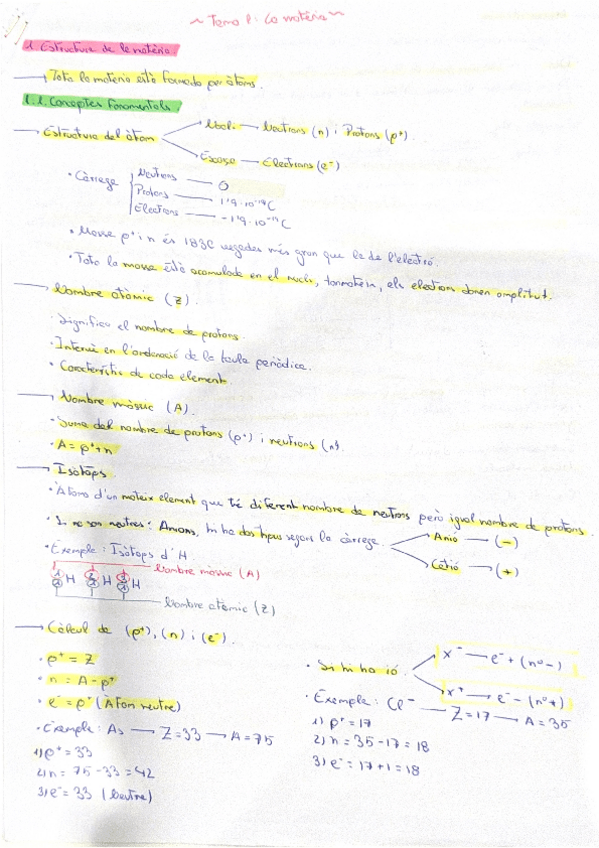 ~ Tema 1: La matèria ~
1. Estructura de la matèria.
→ Tota la matèria està formada per àtoms.
1.1. Conceptes fonamentals.
→ Estructura del àtom
Nucli → Neutrons (n) i Protons (p⁺).
Escorça → Electrons (e⁻)
· Càrrega
Neutrons — 0
Protons — 1'9·10⁻¹⁹C
Electrons — -1'9·10⁻¹⁹C
· Massa p⁺ i n és 1836 vegades més gran que la de l'electró.
· Tota la massa està acumulada en el nucli, tanmateix, els electrons donen amplitut.
→ Nombre atòmic (Z).
· Significa el nombre de protons.
· Intervé en l'ordenació de la taula periòdica.
· Característic de cada element.
→ Nombre màssic (A).
· Suma del nombre de protons (p⁺) i neutrons (n).
· A = p⁺+n
→ Isòtops.
· Àtoms d'un mateix element que té diferent nombre de neutrons però igual nombre de protons.
· I no son neutres: Anions, hi ha dos tipus segons la càrrega.
Anió → (-)
Catió → (+)
· Exemple: Isòtops d'H.
Nombre màssic (A)
1 1 H 2 1 H 3 1 H
Nombre atòmic (Z)
→ Càlcul de (p⁺), (n) i (e⁻).
· p⁺ = Z
· n = A - p⁺
· e⁻ = p⁺ (Àtom neutre)
· Exemple: As → Z=33 → A=75
1) p⁺ = 33
2) n = 75-33 = 42
3) e⁻ = 33 (Neutre)
· Si hi ha ió.
x⁻ → e⁻ + (nº -)
x⁺ → e⁻ - (nº +)
· Exemple: Cl⁻ → Z=17 → A=35
1) p⁺ = 17
2) n = 35-17 = 18
3) e⁻ = 17+1 = 18